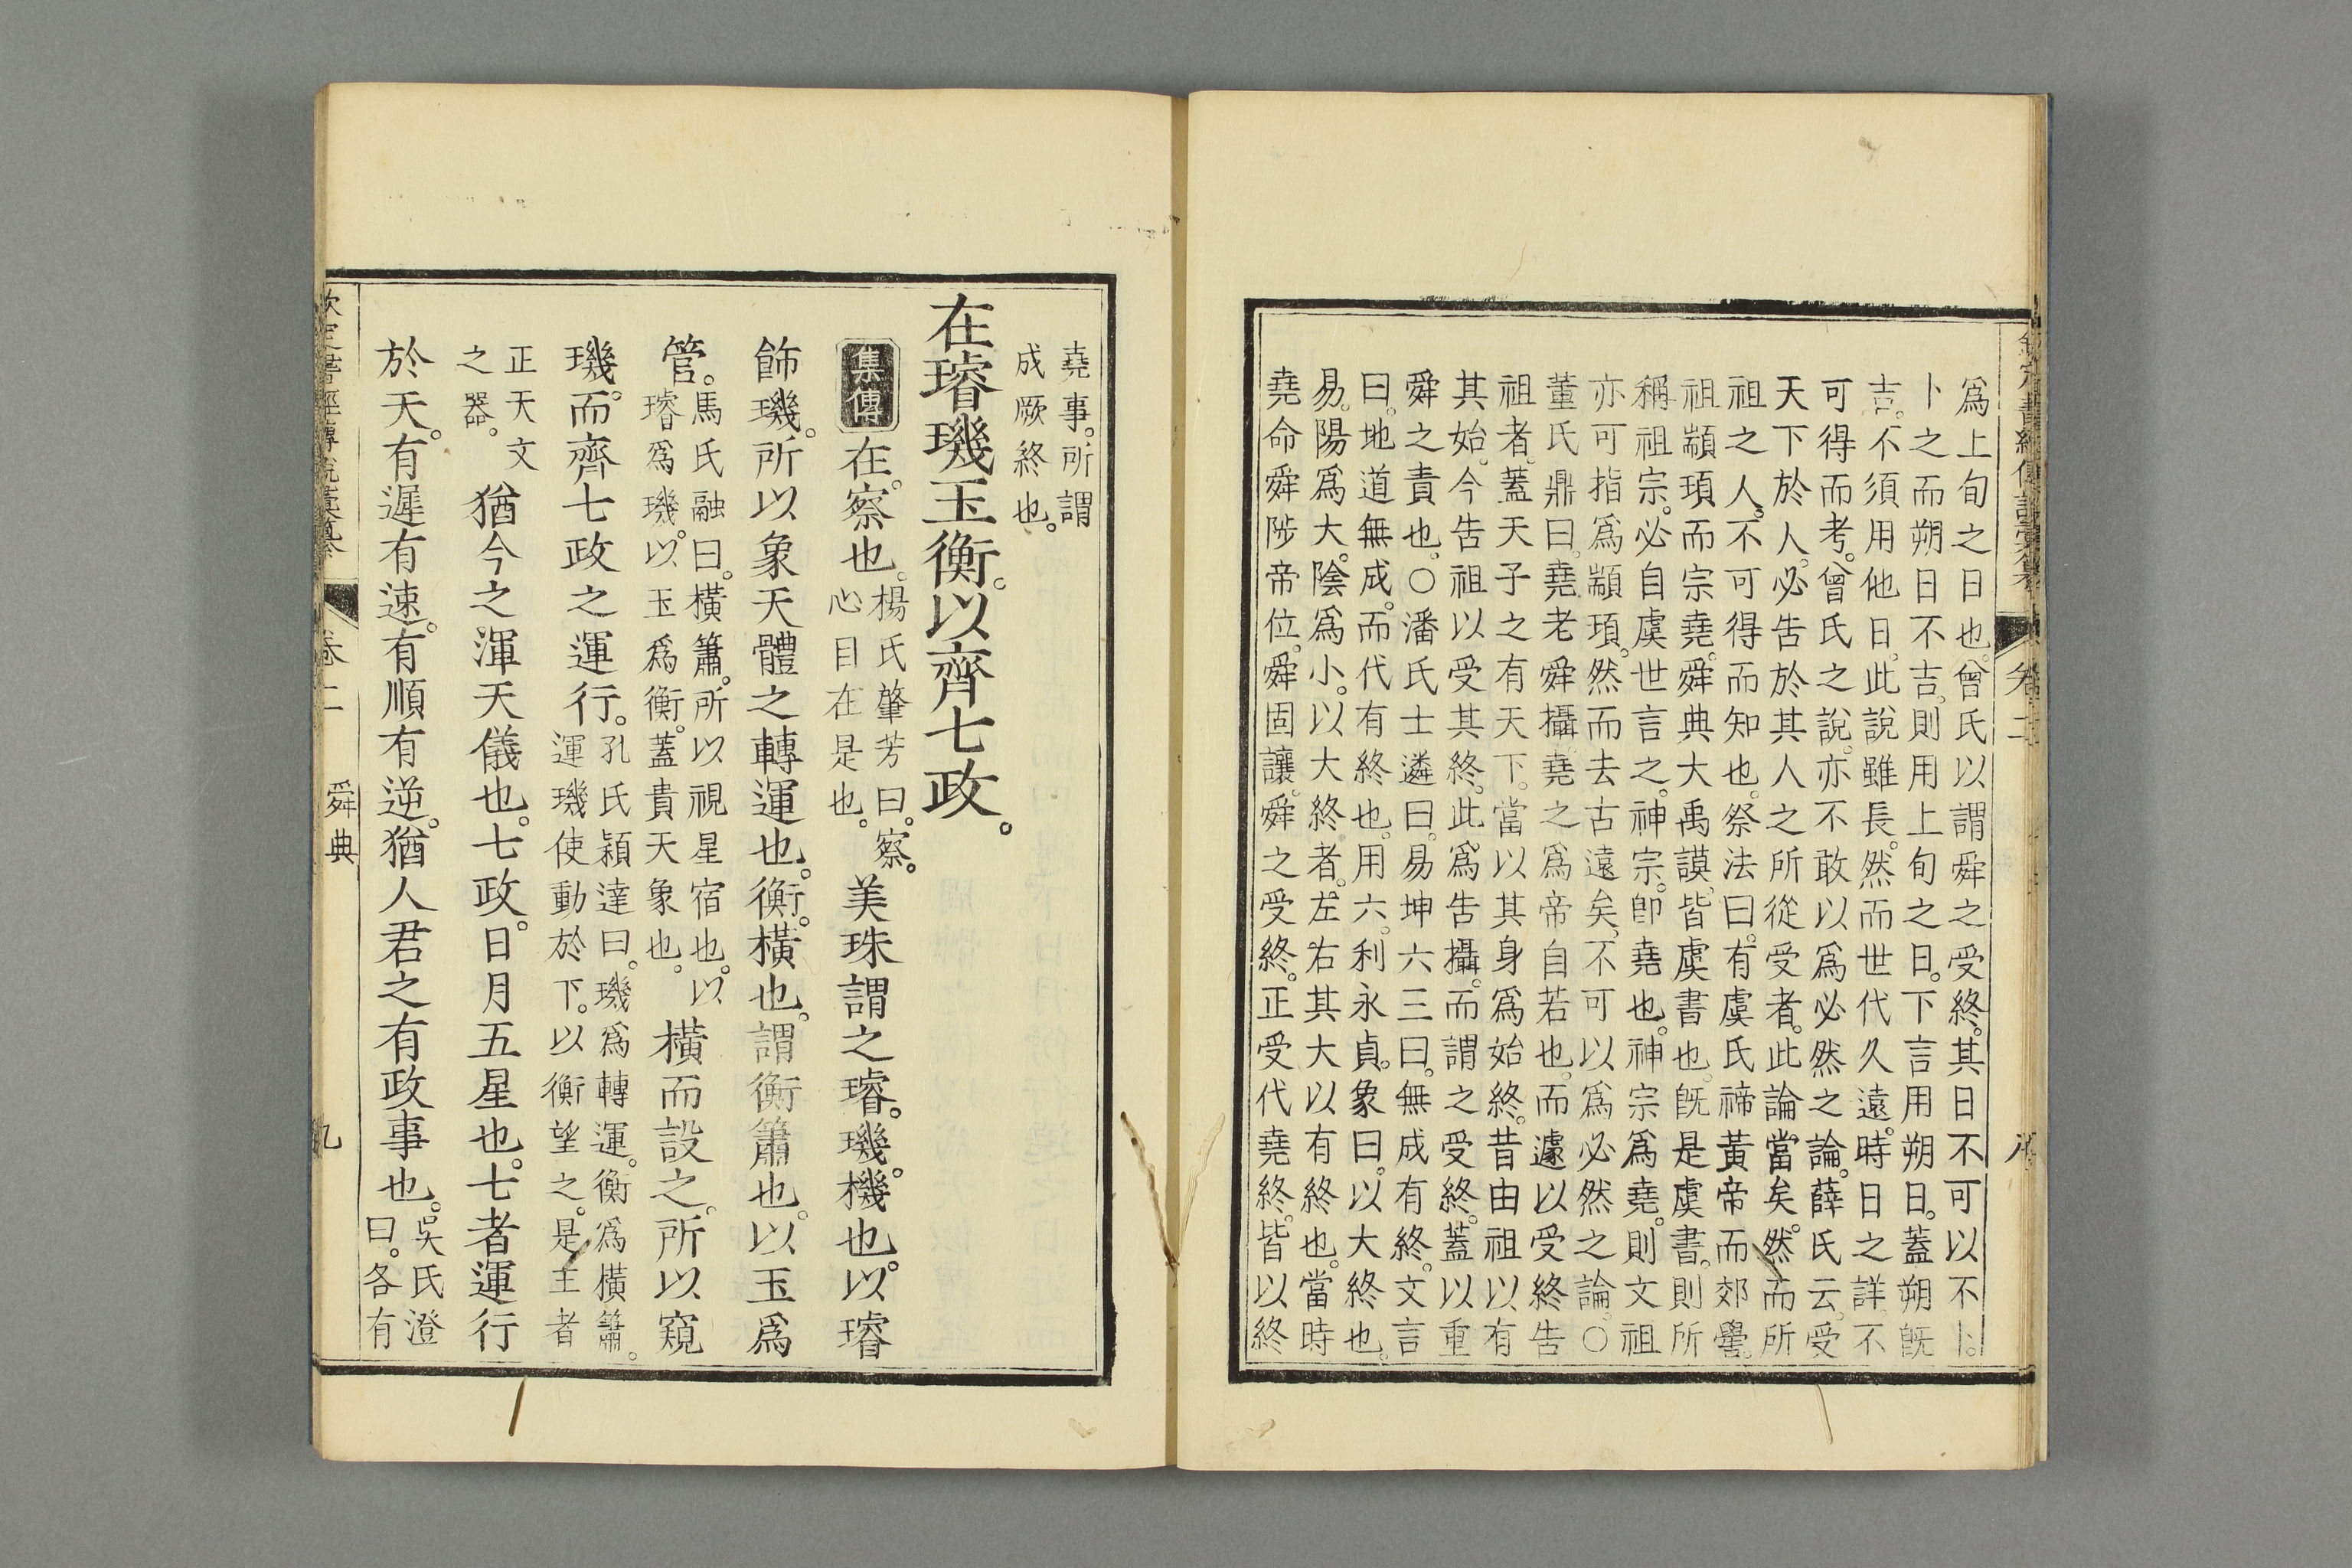 欽定書經傳說彙纂 卷二 八
爲上旬之日也。曾氏以謂舜之受終。其日不可以不卜。
卜之而朔日不吉。則用上旬之日。下言用朔日。蓋朔既
吉。不須用他日。此說雖長。然而世代久遠。時日之詳。不
可得而考。曾氏之說。亦不敢以爲必然之論。薛氏云。受
天下於人。必告於其人之所從受者。此論當矣。然而所
祖之人。不可得而知也。祭法曰。有虞氏禘黃帝而郊嚳。
祖顓頊而宗堯。舜典大禹謨。皆虞書也。既是虞書。則所
稱祖宗。必自虞世言之。神宗。卽堯也。神宗爲堯。則文祖
亦可指爲顓頊。然而去古遠矣。不可以爲必然之論。○
董氏鼎曰。堯老舜攝。堯之爲帝自若也。而遽以受終告
祖者。蓋天子之有天下。當以其身爲始終。昔由祖以有
其始。今告祖以受其終。此爲告攝。而謂之受終。蓋以重
舜之責也。○潘氏士遴曰。易坤六三曰。無成有終。文言
曰。地道無成。而代有終也。用六。利永貞。象曰。以大終也。
易。陽爲大。陰爲小。以大終者。左右其大以有終也。當時
堯命舜陟帝位。舜固讓。舜之受終。正受代堯終。皆以終
堯事。所謂
成厥終也。
在璿璣玉衡。以齊七政。
集傳 在。察也。楊氏肇芳曰。察。心目在是也。美珠謂之璿。璣。機也。以璿
飾璣。所以象天體之轉運也。衡。橫也。謂衡簫也。以玉爲
管。馬氏融曰。橫簫。所以視星宿也。以璿爲璣。以玉爲衡。蓋貴天象也。橫而設之。所以窺
璣。而齊七政之運行。孔氏穎達曰。璣爲轉運。衡爲橫簫。運璣使動於下。以衡望之。是王者
正天文之器。猶今之渾天儀也。七政。日月五星也。七者運行
於天。有遲有速。有順有逆。猶人君之有政事也。吳氏澄曰。各有
欽定書經傳說彙纂 卷二 舜典 九